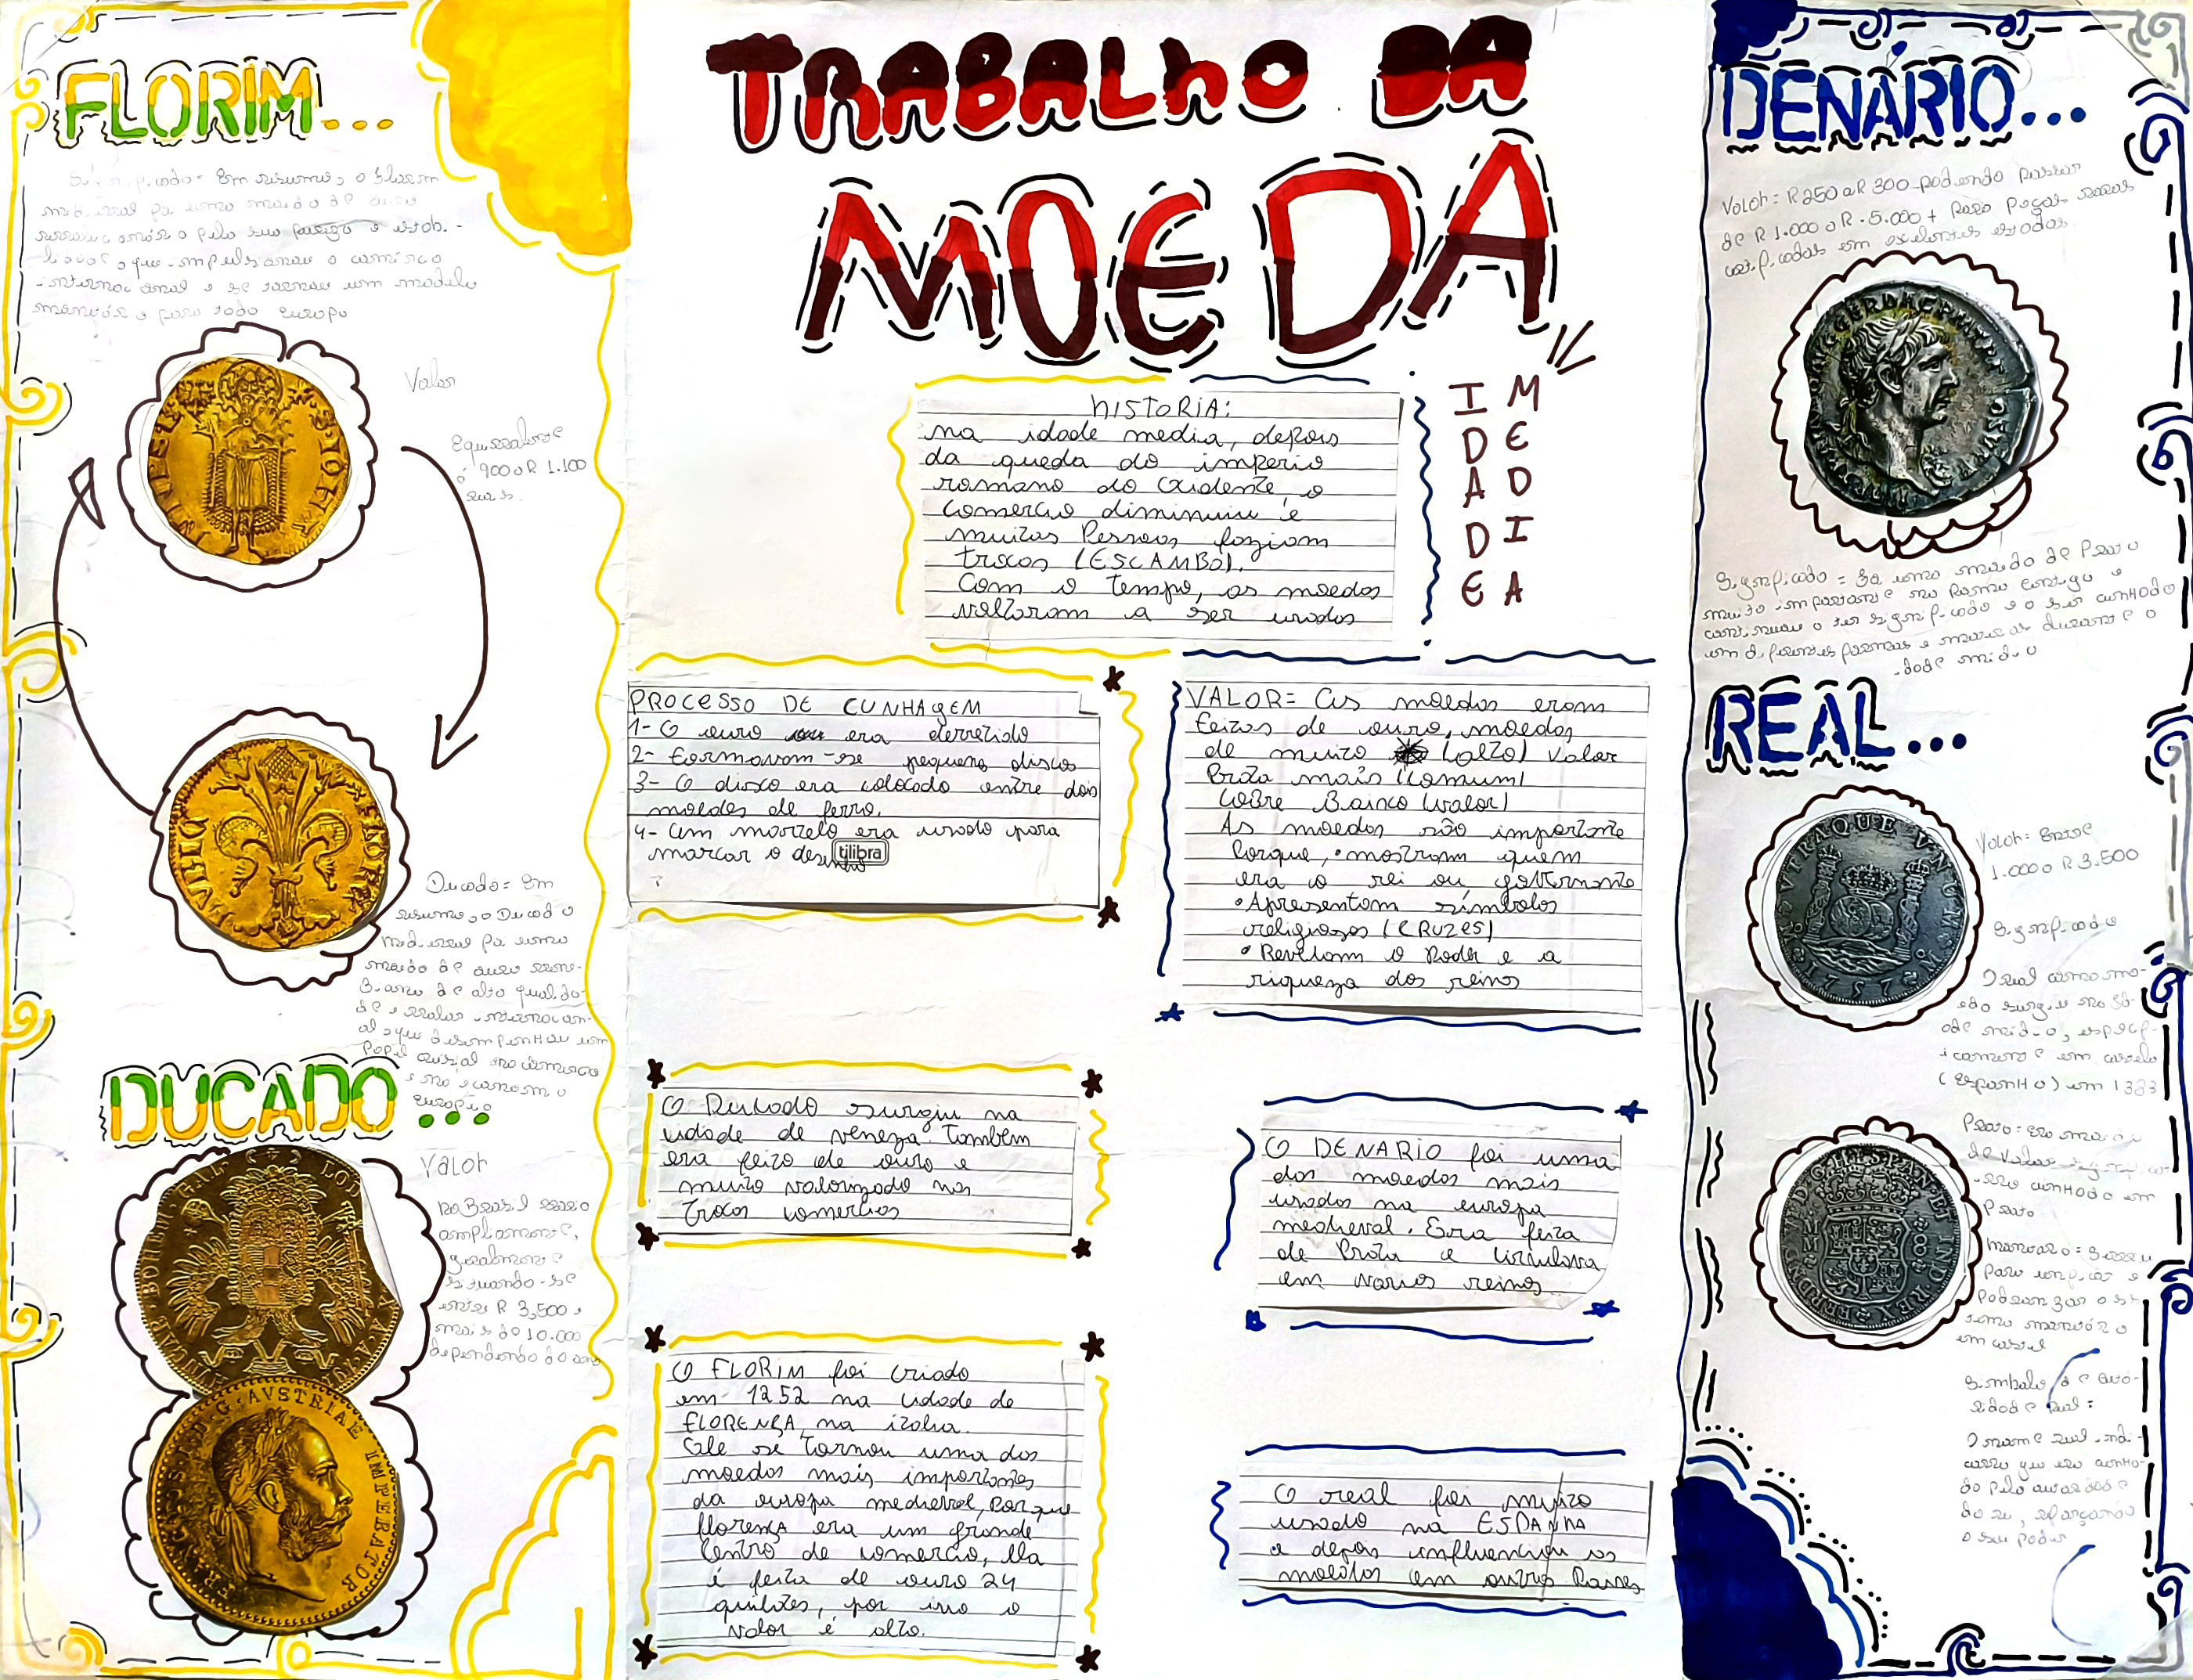 TRABALHO DA
MOEDA
IDADE
MEDIA
FLORIM...
Significado = Em resumo, o florim
medieval foi uma moeda de ouro
pelo seu e estab-
que impulsionou o comércio
internacional e se tornou um modelo
monetário para toda Europa
Valor
Equivalente
á 900 a R 1.100
reais.
Ducado = Em
resumo, o Ducado
medieval foi uma
moeda de ouro vene-
ziano de alta qualida-
de e valor internacion-
al que desempenhou um
papel no comércio
e na economia
européia
DUCADO...
Valor
No Brasil varia
amplamente,
geralmente
situando-se
entre R 3,500 a
mais de 10.000
dependendo do ano
HISTORIA:
na idade media, depois
da queda do imperio
romano do Oxidente, o
comercio diminuiu e
muitas Pessoas faziam
trocas (ESCAMBO).
Com o tempo, as moedas
voltaram a ser usadas
PROCESSO DE CUNHAGEM
1- O ouro era derretido
2- Formavam-se pequenos discos
3- O disco era colocado entre dois
moldes de ferro.
4- Um martelo era usado para
marcar o desenho
tilibra
VALOR = As moedas eram
feitas de ouro, moedas
de muito (alto) valor
Prata mais (comum)
Cobre Baixo (valor)
As moedas são importante
Porque, • mostram quem
era o rei ou governante
• Apresentam símbolos
religiosos (CRUZES)
• Revelam o Poder e a
riqueza dos reinos
O Ducado surgiu na
cidade de veneza. Também
era feito de ouro e
muito valorizado nas
trocas comercios
O DENARIO foi uma
das moedas mais
usadas na europa
medieval. Era feita
de Prata e circulava
em varios reinos.
O FLORIM foi criado
em 1252 na cidade de
FLORENÇA, na italia.
Ele se tornou uma das
moedas mais importantes
da europa medieval, Porque
florença era um grande
Centro de comercio, Ela
é feita de ouro 24
quilates, por isso o
valor é alto.
O real foi muito
usado na ESPANHA
e depois influenciou as
moedas em outros Paises
DENÁRIO...
Valor = R 250 a R 300 podendo passar
de R 1.000 a R 5.000 + para peças raras
certificadas em exelentes estados.
Significado = Foi uma moeda de Prata
muito importante na Roma Antiga e
continuou a ter significado e a ser cunHado
em diferentes formas e durante a
idade média
REAL...
Valor = Entre
1.000 a R 3.500
Significado
O real como mo-
eda surgiu na id-
ade média, especif-
icamente em castela
(EspanHa) em 1383
Prata = Era
de valor
cunHada em
Prata
Monetario = Serviu
para unificar e
padronizar o sis-
tema monetário
em castel
Simbolo de auto-
ridade real =
O nome real indi-
cava que era cunHa-
do pela autoridade
do rei, reforçando
o seu poder